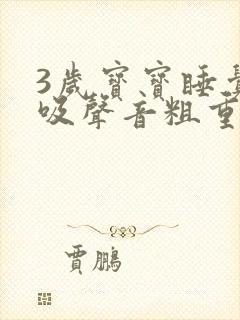 3歲寶寶睡
吸聲音粗重
賈鵬